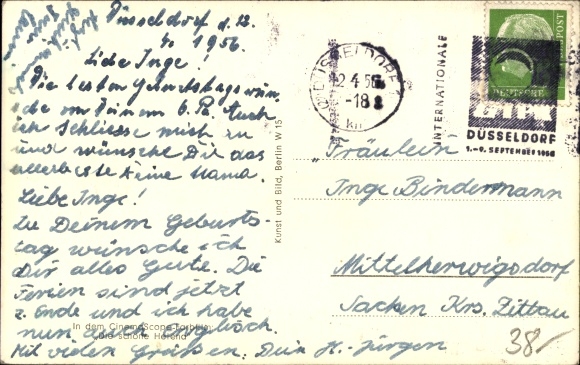 Düsseldorf d. 12.
4. 1956.
Liebe Inge!
Die besten Geburtstagswün-
sche von Deinem G. Pa. Auch
ich schliesse mich zu
und wünsche Dir das
allerbeste Deine Mama.
Liebe Inge!
Zu Deinem Geburts-
tag wünsche ich
Dir alles Gute. Die
Ferien sind jetzt
z. Ende und ich habe
nun auch Englisch.
Mit vielen Grüßen. Dein H.-Jürgen
In dem CinemaScope-Farbfilm
"Die schöne Helena"
Kunst und Bild, Berlin W 15
DÜSSELDORF
12.4.56
-18
INTERNATIONALE
DÜSSELDORF
1.-9. SEPTEMBER 1956
DEUTSCHE
BUNDESPOST
Fräulein
Inge Bindermann
Mittelherwigsdorf
Sachen Krs. Zittau
38/-